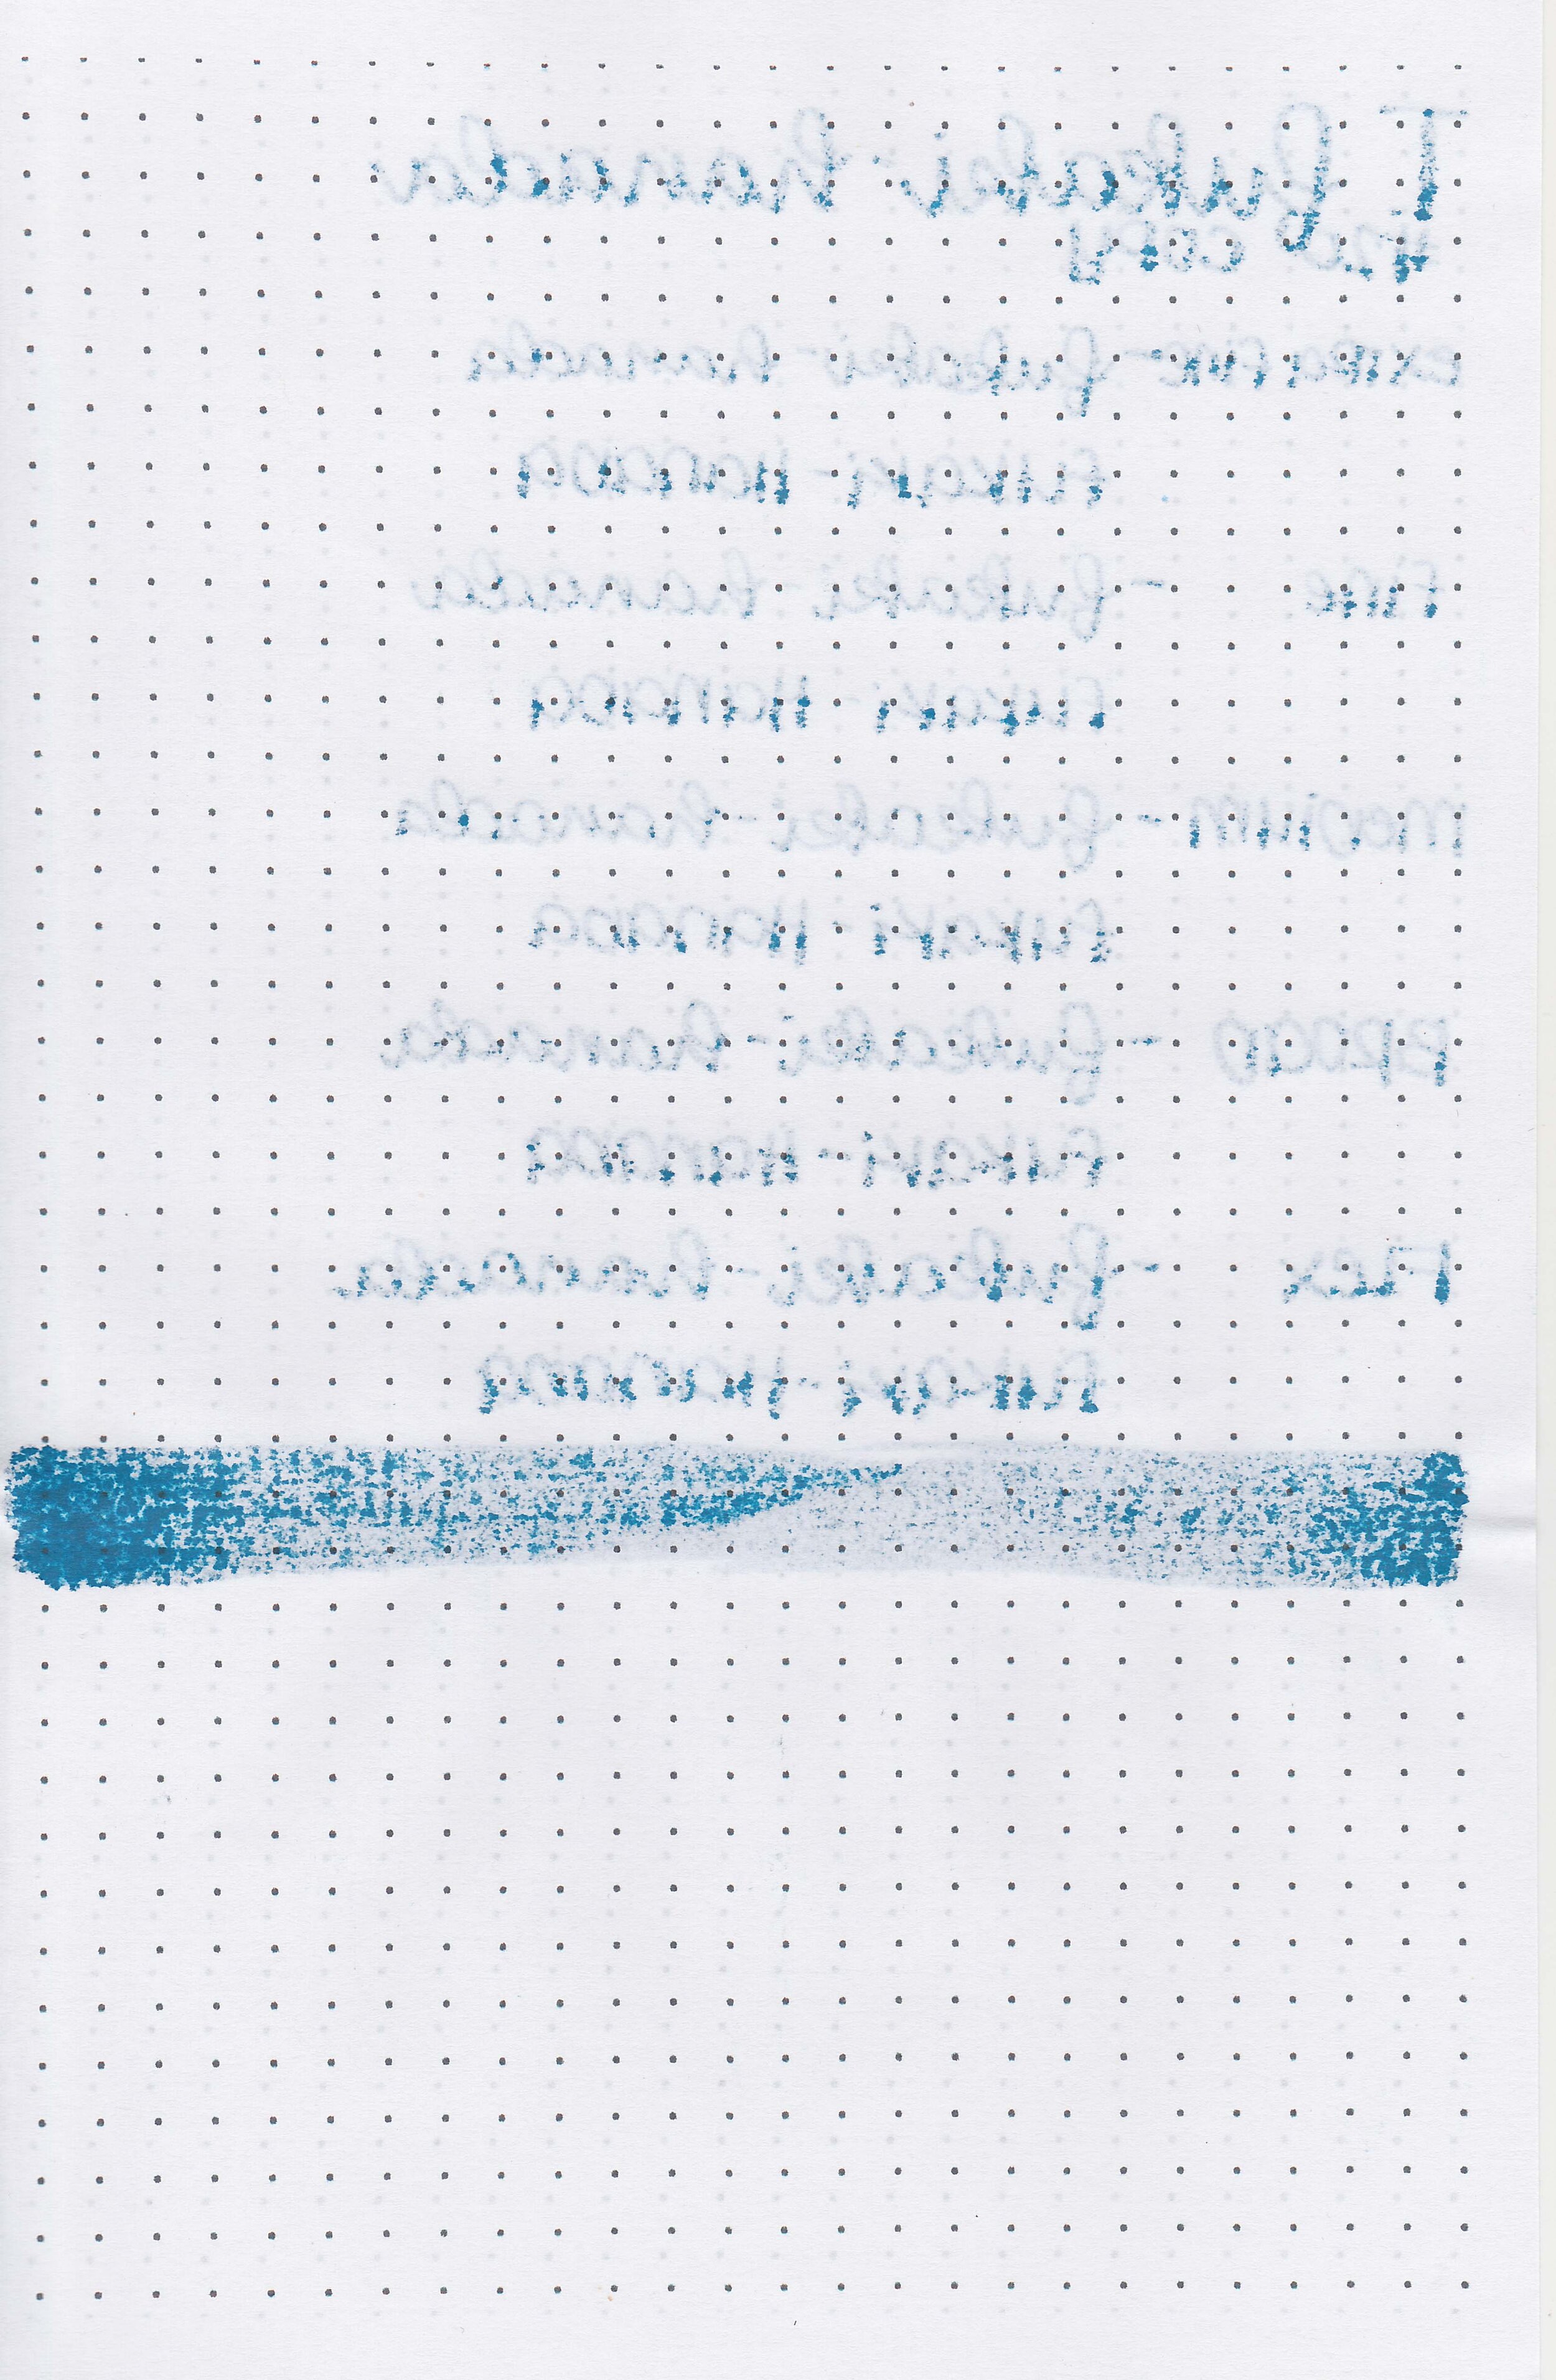 T. fukaki-hanada
#20 copy
Extra Fine - fukaki-hanada
fukaki-hanada
Fine - fukaki-hanada
fukaki-hanada
Medium - fukaki-hanada
fukaki-hanada
Broad - fukaki-hanada
fukaki-hanada
Flex - fukaki-hanada
fukaki-hanada